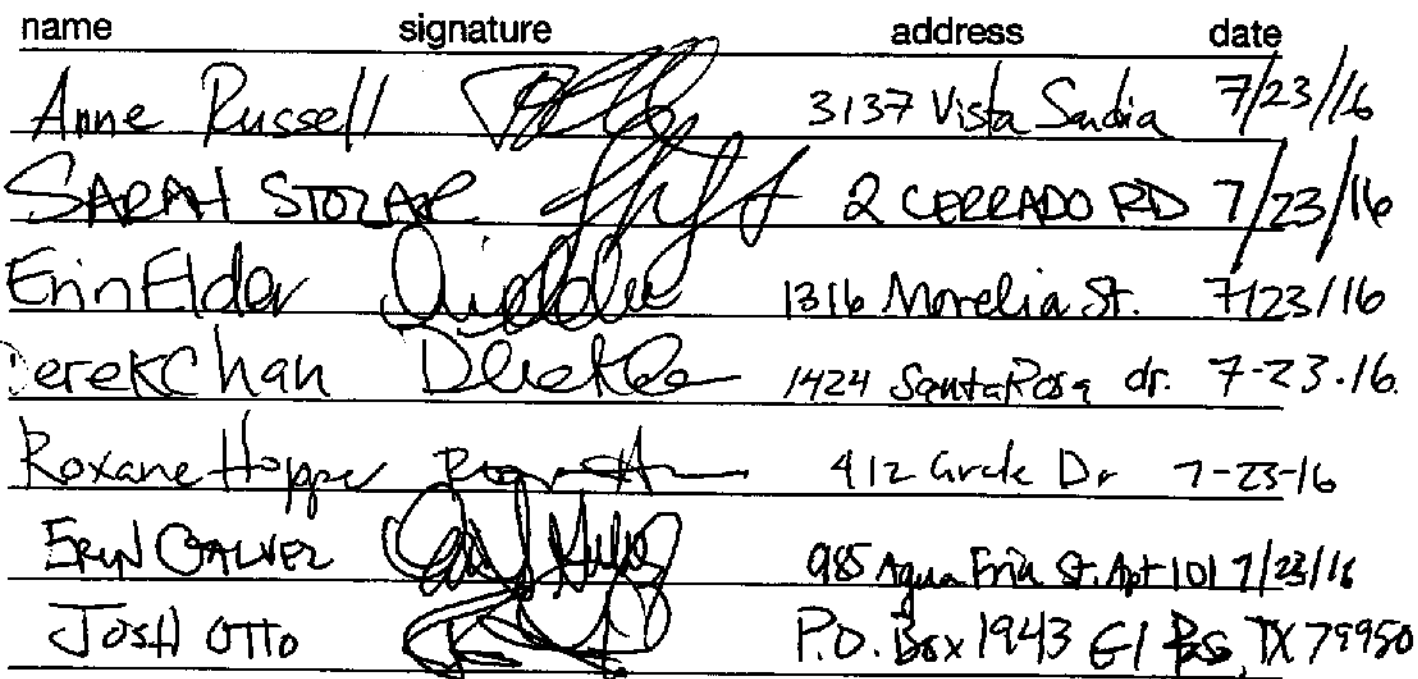 name signature address date
Anne Russell 3137 Vista Sandia 7/23/16
SARAH STOLAR 2 CERRADO RD 7/23/16
Erin Elder 1316 Morelia St. 7/23/16
Derek Chan 1424 Santa Rosa dr. 7-23-16
Roxane Hopper 412 Circle Dr 7-23-16
ERIN GALVEZ 985 Agua Fria St. Apt 101 7/23/16
JOSH OTTO P.O. Box 1943 El TX 79950